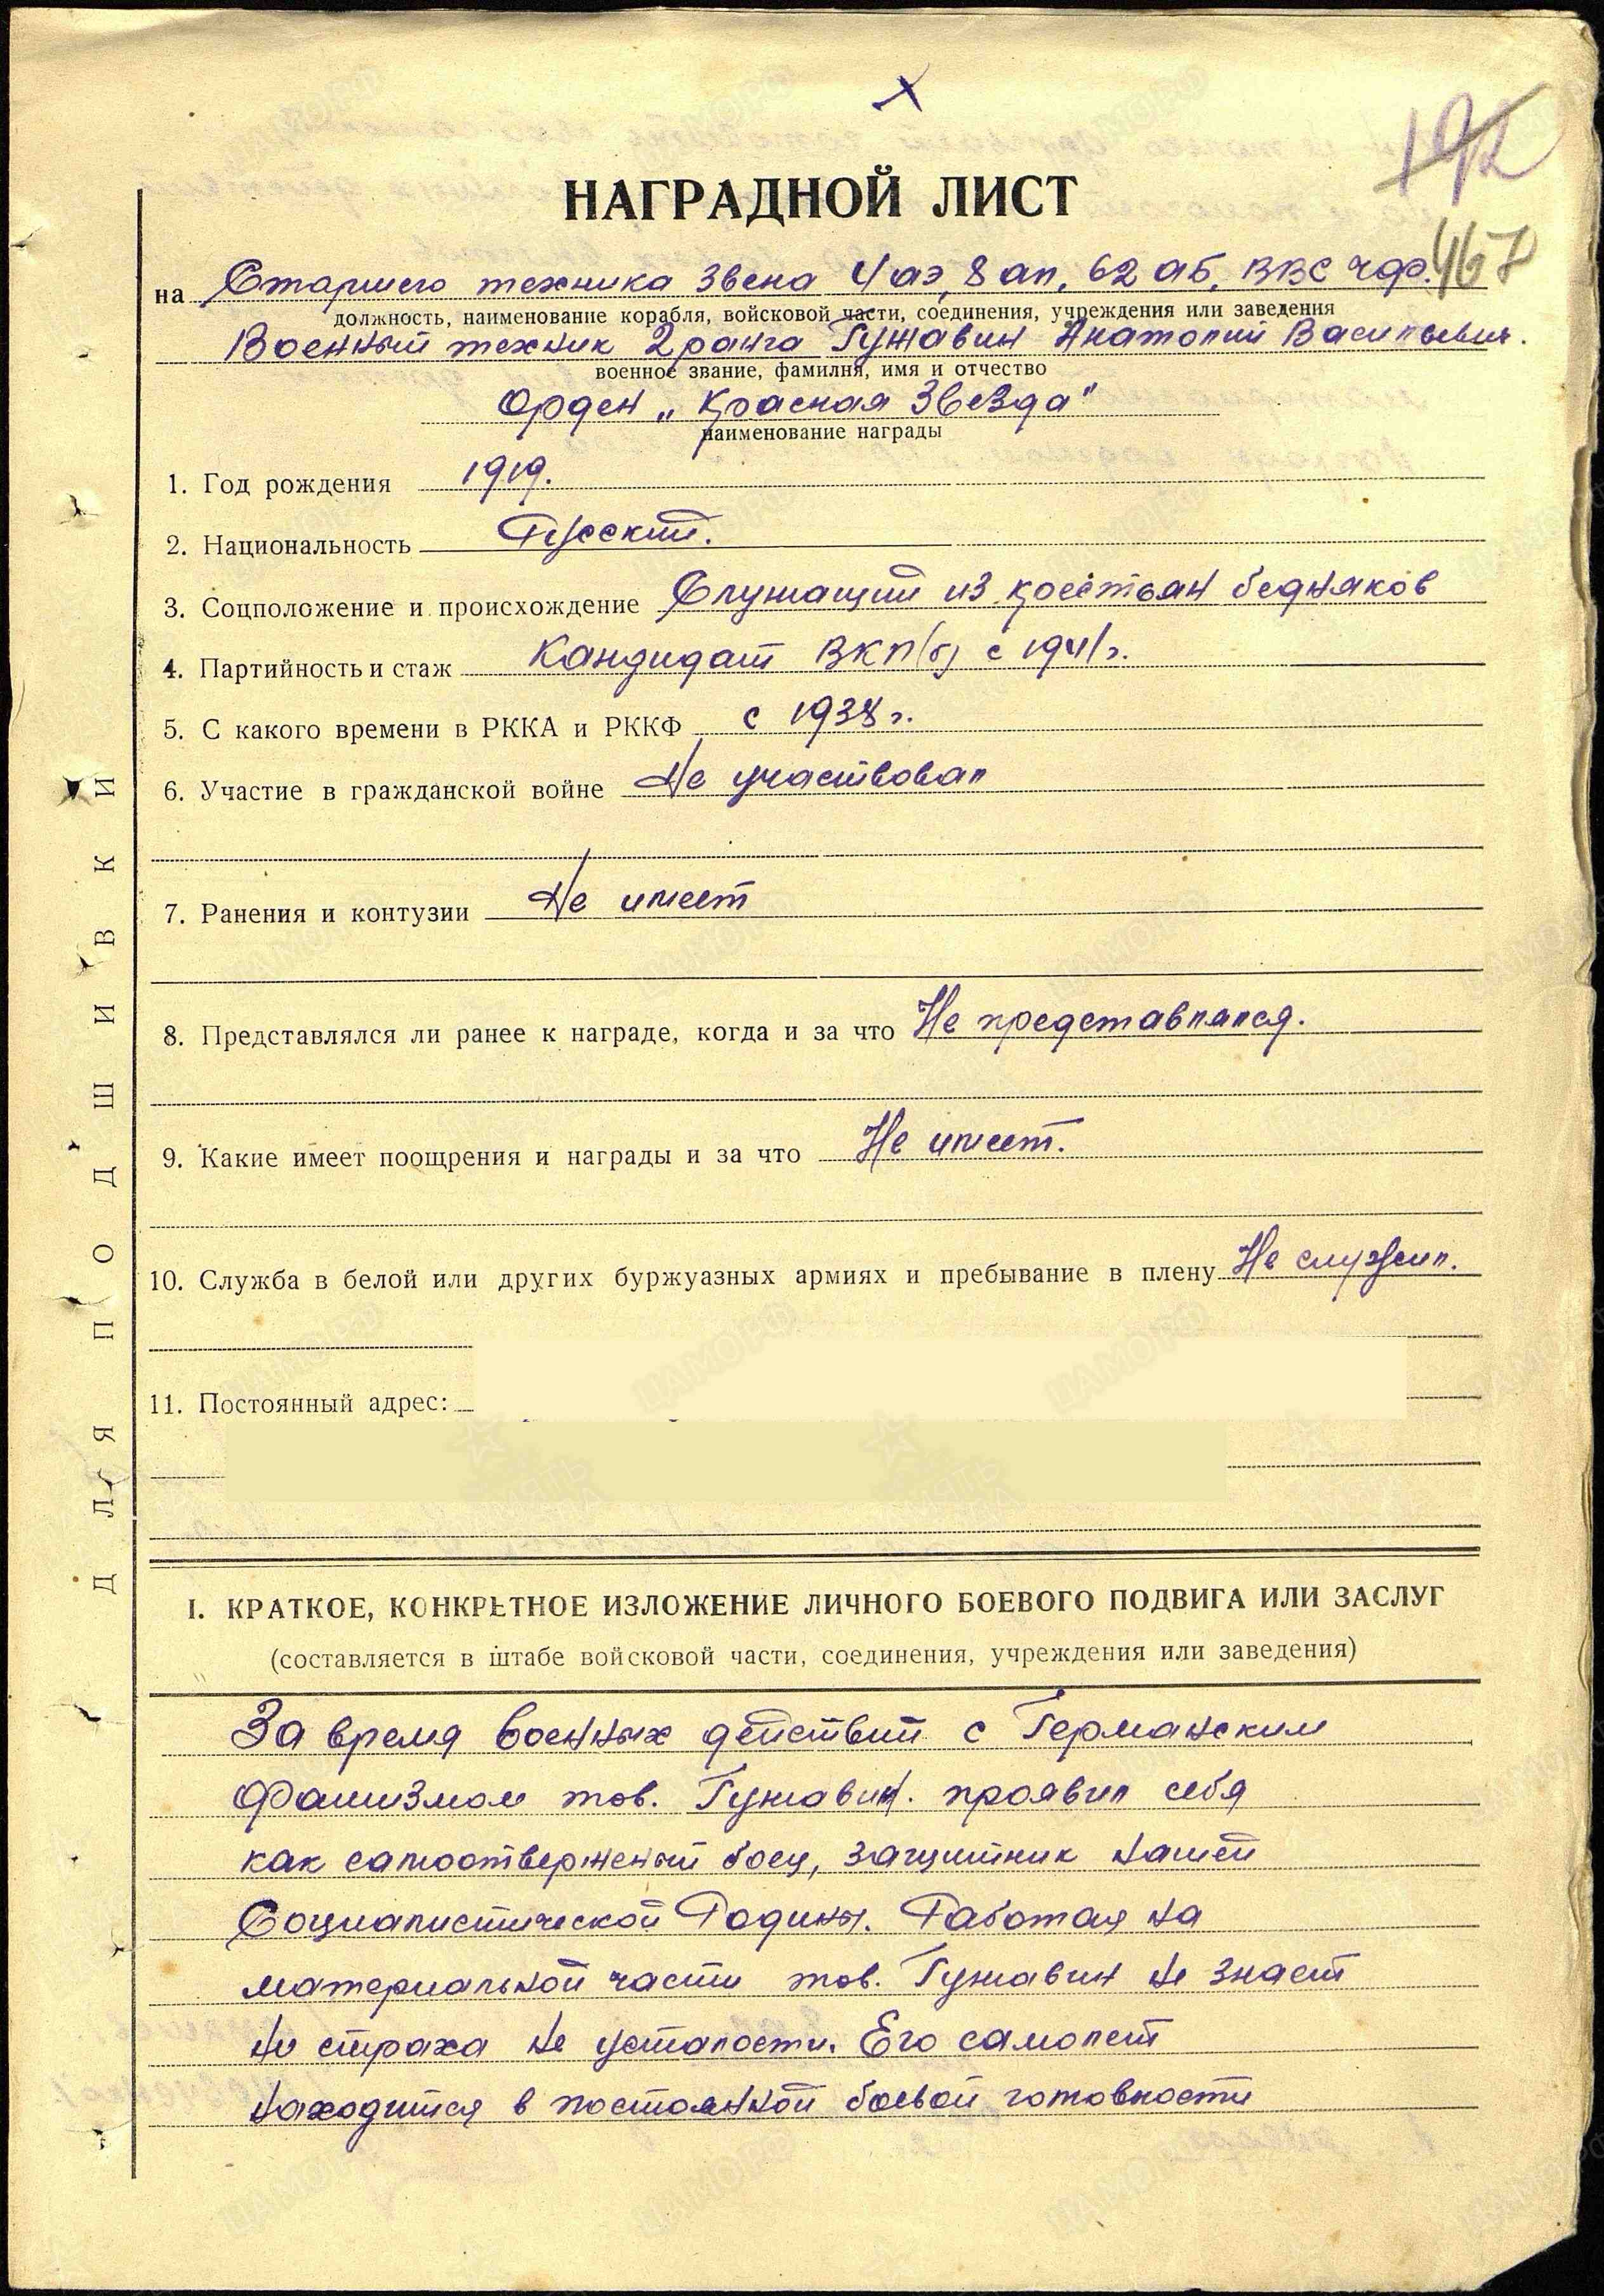 х
192
НАГРАДНОЙ ЛИСТ
467
на Старшего техника звена 4 аэ, 8 ап, 62 аб, ВВС ЧФ.
должность, наименование корабля, войсковой части, соединения, учреждения или заведения
Военный техник 2 ранга Гужавин Анатолий Васильевич.
военное звание, фамилия, имя и отчество
Орден „Красная Звезда"
наименование награды
1. Год рождения 1919.
2. Национальность Русский.
3. Соцположение и происхождение Служащий из крестьян бедняков
4. Партийность и стаж Кандидат ВКП(б) с 1941 г.
5. С какого времени в РККА и РККФ с 1938 г.
6. Участие в гражданской войне Не участвовал
7. Ранения и контузии Не имеет
8. Представлялся ли ранее к награде, когда и за что Не представлялся.
9. Какие имеет поощрения и награды и за что Не имеет.
10. Служба в белой или других буржуазных армиях и пребывание в плену Не служил.
11. Постоянный адрес:
ДЛЯ ПОДШИВКИ
I. КРАТКОЕ, КОНКРЕТНОЕ ИЗЛОЖЕНИЕ ЛИЧНОГО БОЕВОГО ПОДВИГА ИЛИ ЗАСЛУГ
(составляется в штабе войсковой части, соединения, учреждения или заведения)
За время военных действий с Германским
Фашизмом тов. Гужавин. проявил себя
как самоотверженый боец, защитник нашей
Социалистической Родины. Работая на
материальной части тов. Гужавин не знает
ни страха не усталости. Его самолет
находится в постоянной боевой готовности